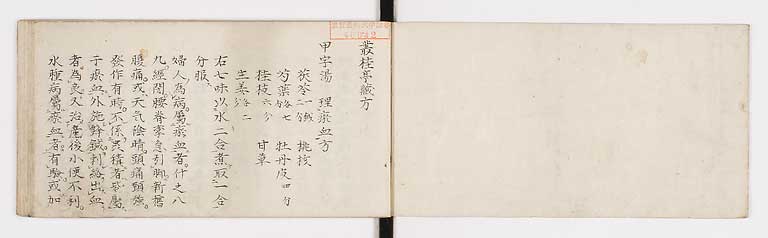 叢桂亭蔵方
甲字湯 理瘀血方
茯苓 桃核
芍薬 各七 牡丹皮 四分
桂枝 六分 甘草
生姜 各二
右七味以水二合煮取一合
分服
婦人為病属瘀血者什之八
九經閉腰脊攣急引脚
腹痛或天気陰晴頭痛頭強
發作有時不係積者
瘀血外施鍼刺絡出血
者為大治産後小便不利
水腫病屬瘀血者有驗或加